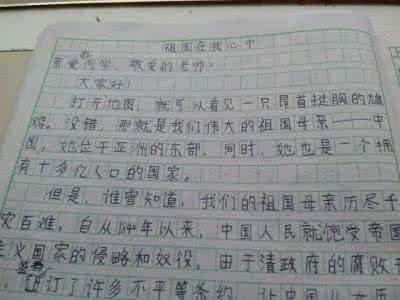 祖国在我心中
亲爱的同学，敬爱的老师：
大家好！
打开地图，就可以看见一只昂首挺胸的雄
鸡。没错，那就是我们伟大的祖国母亲——中
国。她位于亚洲的东部，同时，她也是一个拥
有十多亿人口的国家。
但是，谁曾知道，我们的祖国母亲历尽千
灾百难。自从1840年以来，中国人民就饱受帝国
主义国家的侵略和奴役。由于清政府的腐败
签订了许多不平等条约，让中国